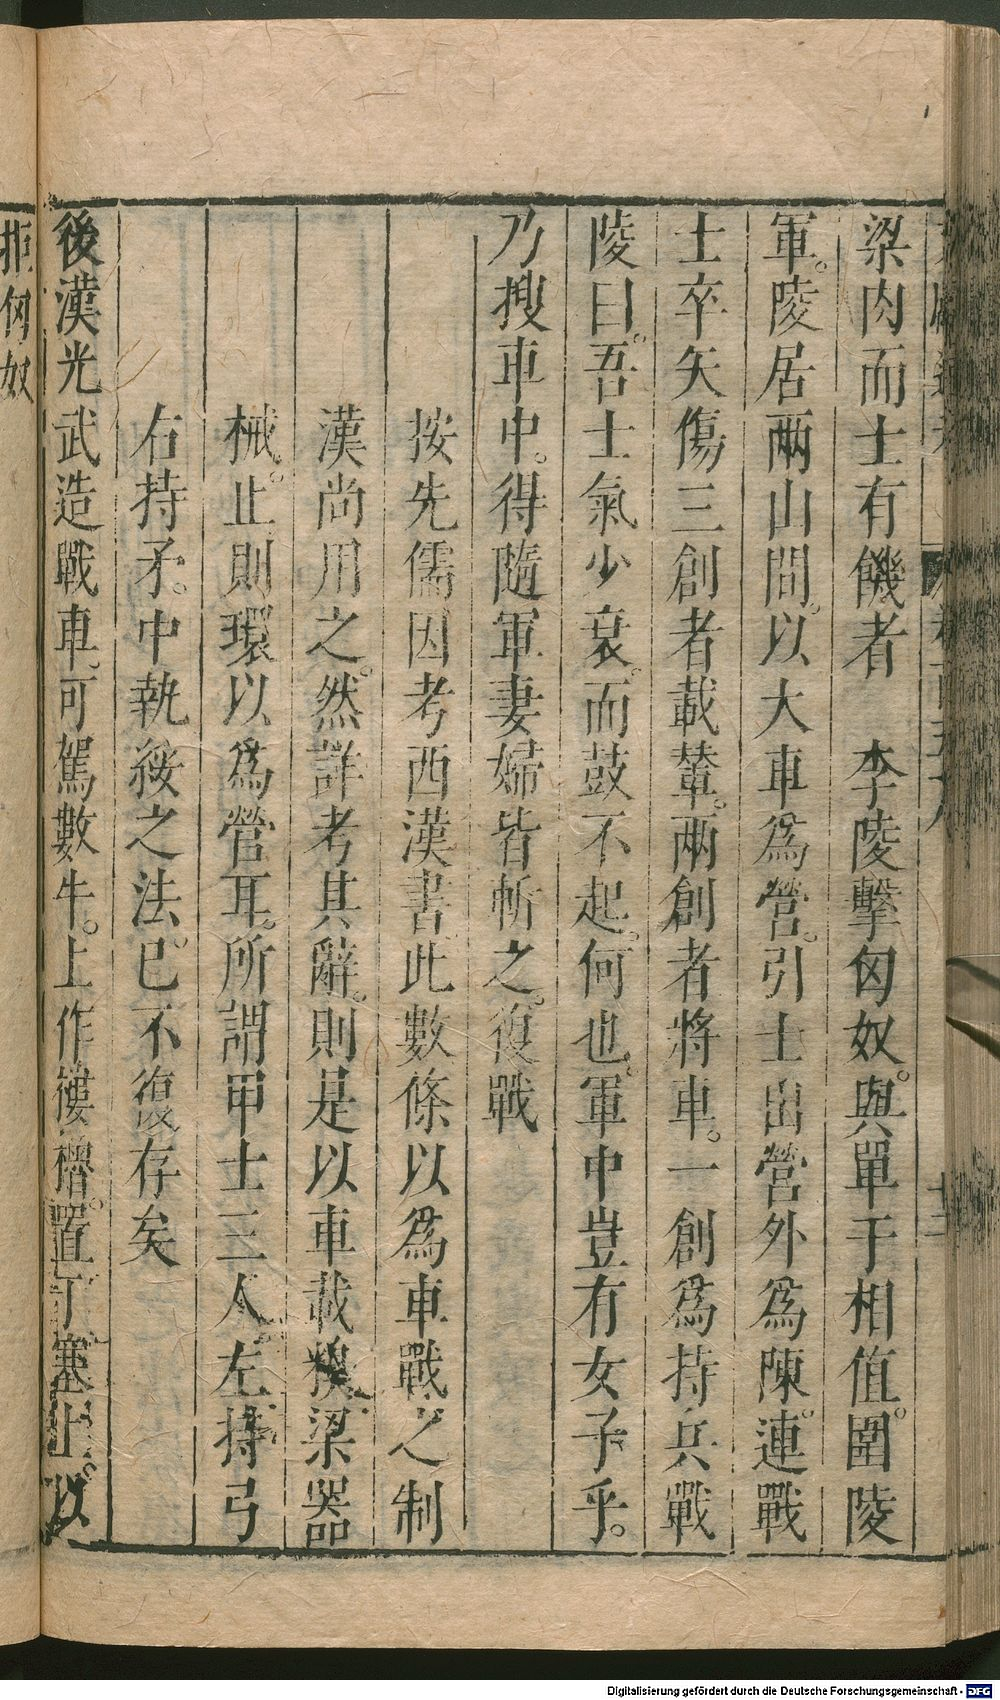 梁肉而士有饑者　李陵擊匈奴。與單于相值。圍陵
軍。陵居兩山間。以大車爲營。引士出營外爲陳。連戰
士卒矢傷三創者載輦。兩創者將車。一創爲持兵戰
陵曰。吾士氣少衰。而鼓不起。何也。軍中豈有女子乎。
乃搜車中。得隨軍妻婦皆斬之。復戰
按先儒因考西漢書此數條以爲車戰之制
漢尚用之。然詳考其辭。則是以車載糗梁器
械。止則環以爲營耳。所謂甲士三人。左持弓
右持矛。中執綏之法。已不復存矣
後漢光武造戰車。可駕數牛。上作樓櫓。置丁塞上。以
拒匈奴
Digitalisierung gefördert durch die Deutsche Forschungsgemeinschaft - DFG